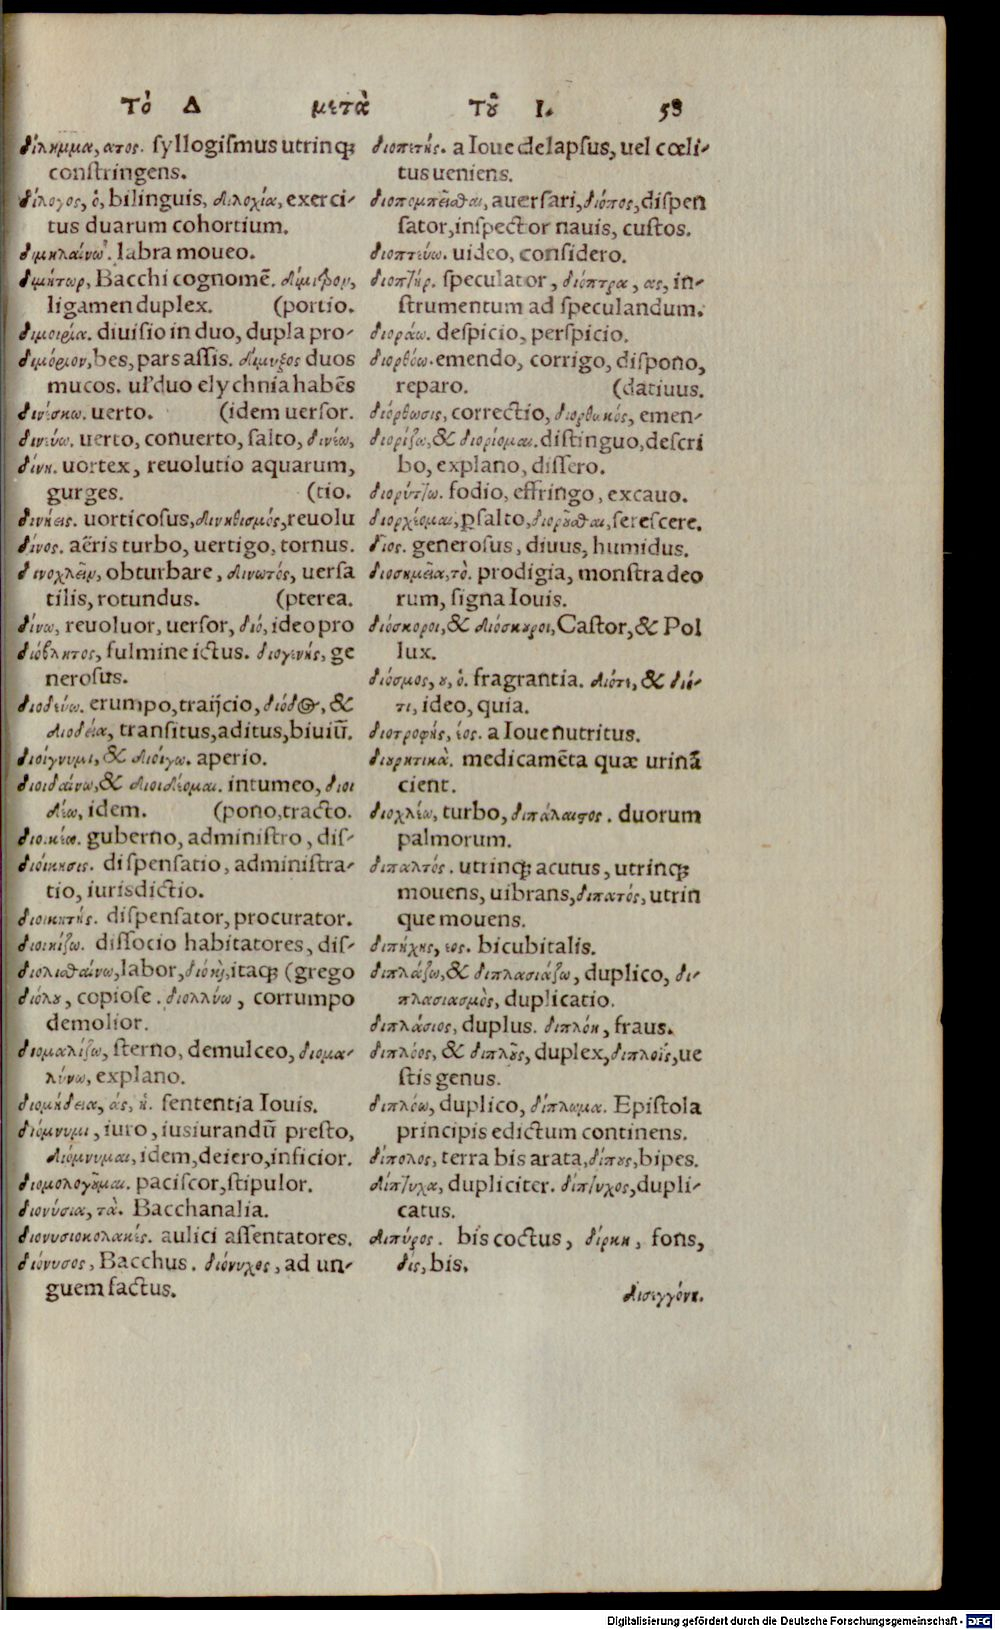 Τὸ Δ μετὰ Τοῦ Ι. 58
δίλημμα, ατος. syllogismus utrinq;
constringens.
δίλογος, ὁ, bilinguis, διλοχία, exerci-
tus duarum cohortium.
διμηλαίνω. labra moueo.
διμήτωρ, Bacchi cognomē. δίμιτρον,
ligamen duplex. (portio.
διμοιρία. diuisio in duo, dupla pro-
διμόριον, bes, pars assis. δίμυξος duos
mucos. uł duo elychnia habēs
δινέσκω. uerto. (idem uersor.
δινεύω. uerto, conuerto, salto, δινέω,
δίνη. uortex, reuolutio aquarum,
gurges. (tio.
δινήεις. uorticosus, δινηθισμός, reuolu
δίνος. aëris turbo, uertigo, tornus.
δινοχλεῖν, obturbare, δινωτός, uersa
tilis, rotundus. (pterea.
δίνω, reuoluor, uersor, διό, ideo pro
διόβλητος, fulmine ictus. διογενής, ge
nerosus.
διοδεύω. erumpo, traijcio, δίοδος, &
διοδεία, transitus, aditus, biuiū.
διοίγνυμι, & διοίγω. aperio.
διοιδαίνω, & διοιδέομαι. intumeo, διοι
δέω, idem. (pono, tracto.
διοικέω. guberno, administro, dis-
διοίκησις. dispensatio, administra-
tio, iurisdictio.
διοικητής. dispensator, procurator.
διοικίζω. dissocio habitatores, dis-
διολισθαίνω, labor, διόπερ, itaq; (grego
διόλου, copiose. διολλύω, corrumpo
demolior.
διομαλίζω, sterno, demulceo, διομα-
λύνω, explano.
διομήδεια, ας, ἡ. sententia Iouis.
διόμνυμι, iuro, iusiurandū presto,
διόμνυμαι, idem, deiero, inficior.
διομολογοῦμαι. paciscor, stipulor.
διονύσια, τὰ. Bacchanalia.
διονυσιοκολακές. aulici assentatores.
διόνυσος, Bacchus. διόνυχος, ad un-
guem factus.
διοπετής. a Ioue delapsus, uel cœli-
tus ueniens.
διοπομπεῖσθαι, auersari, δίοπος, dispen
sator, inspector nauis, custos.
διοπτεύω. uideo, considero.
διοπτήρ. speculator, διόπτρα, ας, in-
strumentum ad speculandum.
διοράω. despicio, perspicio.
διορθόω. emendo, corrigo, dispono,
reparo. (datiuus.
διόρθωσις, correctio, διορθικός, emen-
διορίζω, & διορίομαι. distinguo, descri
bo, explano, dissero.
διορύττω. fodio, effringo, excauo.
διορχέομαι, ꝑsalto, διοροῦσθαι, serescere.
δῖος. generosus, diuus, humidus.
διοσημεῖα, τὸ. prodigia, monstra deo
rum, signa Iouis.
διόσκοροι, & διόσκουροι, Castor, & Pol
lux.
δίοσμος, ου, ὁ. fragrantia. διότι, & διό-
τι, ideo, quia.
διοτροφής, έος. a Ioue nutritus.
διουρητικὰ. medicamēta quæ urinā
cient.
διοχλέω, turbo, διπάλαιστος. duorum
palmorum.
διπαλτός. utrinq; acutus, utrinq;
mouens, uibrans, διπατός, utrin
que mouens.
διπήχης, εος. bicubitalis.
διπλάζω, & διπλασιάζω, duplico, δι-
πλασιασμὸς, duplicatio.
διπλάσιος, duplus. διπλόη, fraus.
διπλόος, & διπλοῦς, duplex, διπλοΐς, ue
stis genus.
διπλόω, duplico, δίπλωμα. Epistola
principis edictum continens.
δίπολος, terra bis arata, δίπους, bipes.
δίπτυχα, dupliciter. δίπτυχος, dupli-
catus.
διπύρος. bis coctus, δίρκη, fons,
δίς, bis.
δισεγγόνε.
Digitalisierung gefördert durch die Deutsche Forschungsgemeinschaft - DFG